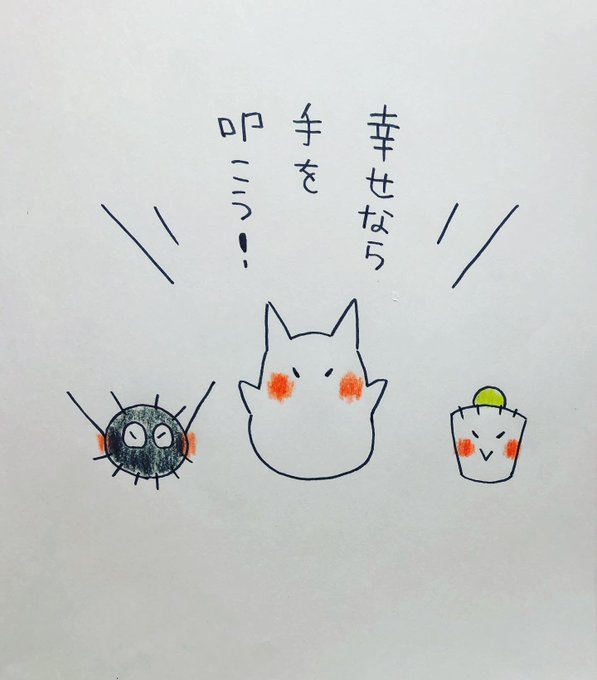 幸せなら
手を
叩こう!